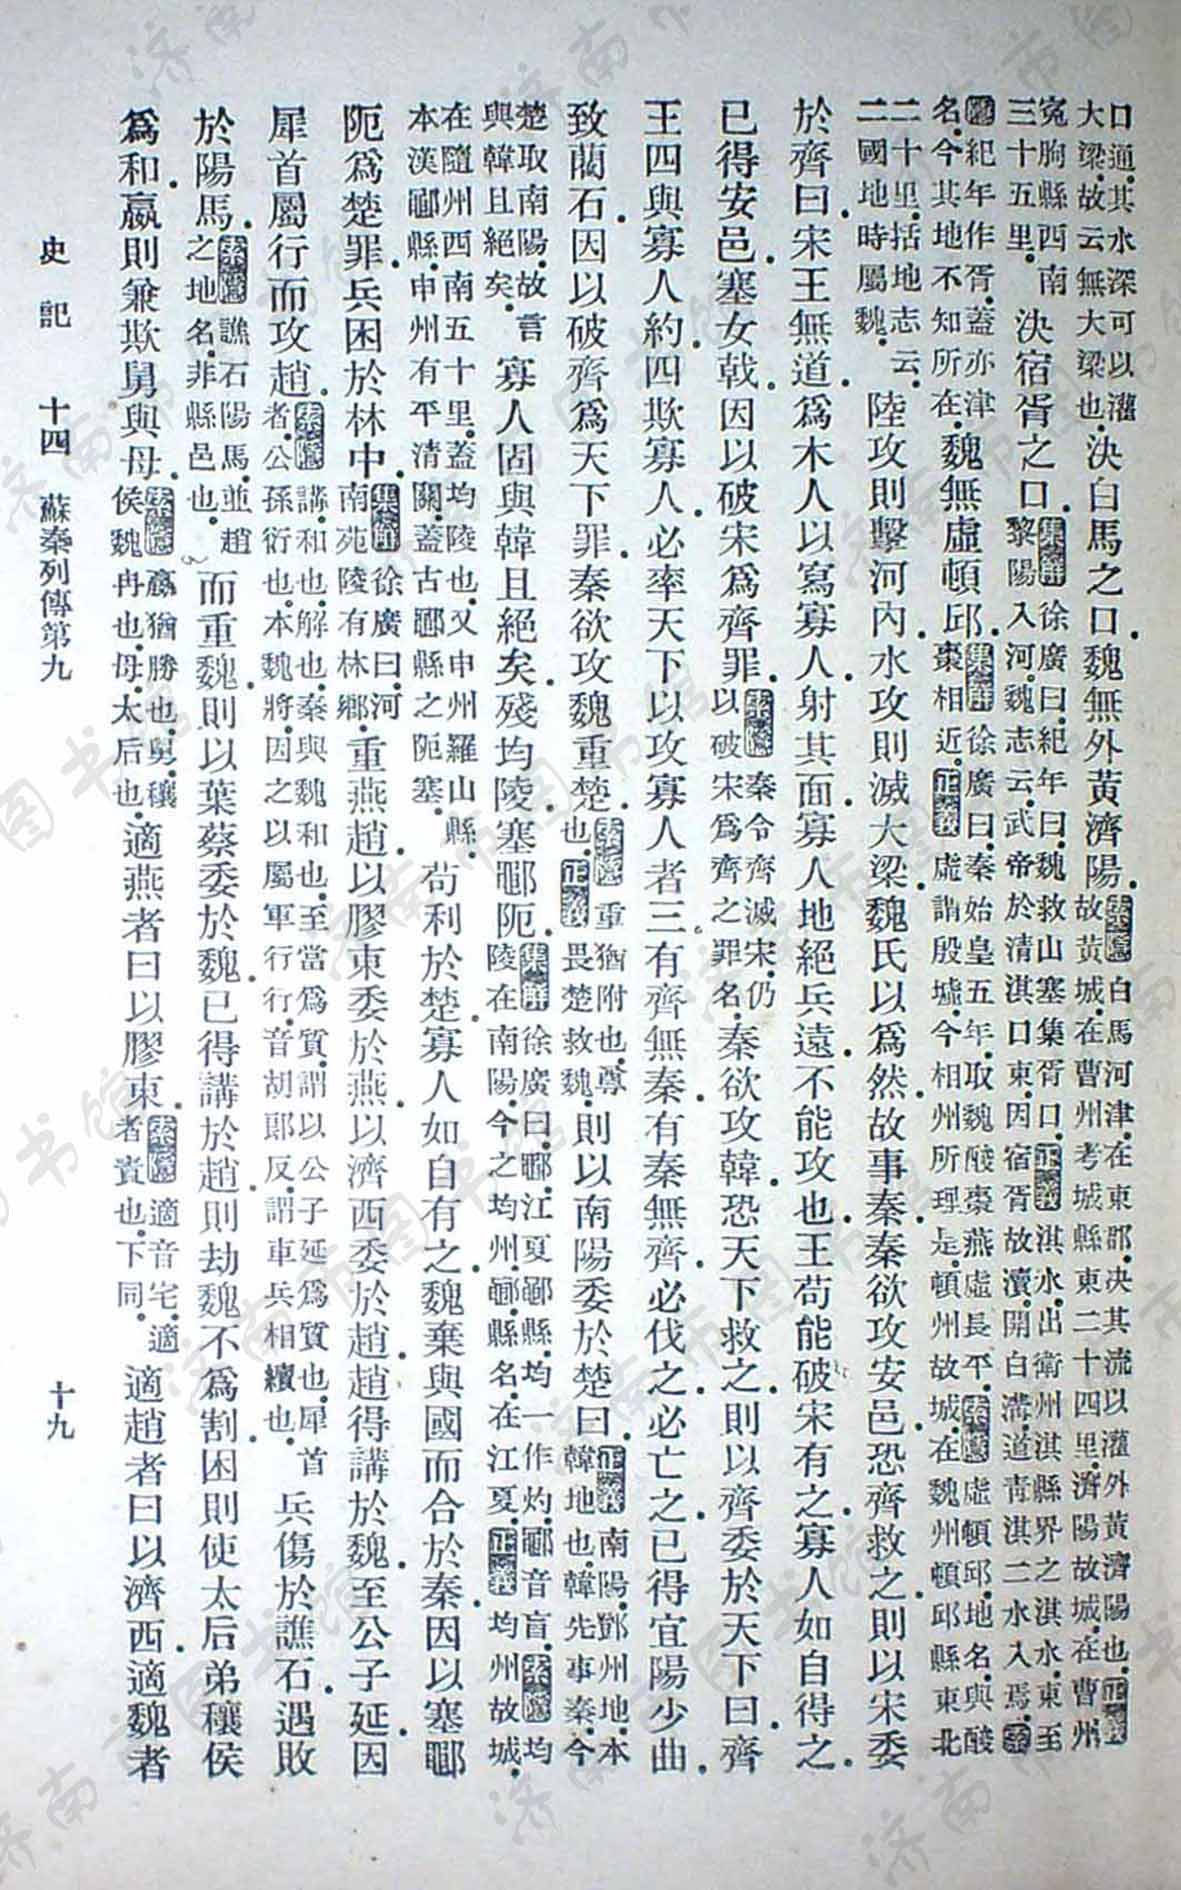 口通。其水深可以灌大梁。故云無大梁也。決白馬之口。魏無外黃濟陽。索隱白馬河津。在東郡。決其流以灌外黃濟陽也。正義故黃城。在曹州考城縣東二十四里。濟陽故城。在曹州
寃朐縣西南三十五里。決宿胥之口。集解徐廣曰。紀年曰。魏救山塞集胥口。正義淇水。出衛州淇縣界之淇水。東至黎陽入河。魏志云。武帝於清淇口東。因宿胥故瀆。開白溝。道青淇二水入焉。索
隱紀年作胥。蓋亦津名。今其地不知所在。魏無虛頓邱。集解徐廣曰。秦始皇五年。取魏酸棗燕虛長平。索隱虛頓邱。地名。與酸棗相近。正義虛謂殷墟。今相州所理是。頓州故城。在魏州頓邱縣東北
二十里。括地志云。二國地時屬魏。陸攻則擊河內。水攻則滅大梁。魏氏以爲然。故事秦。秦欲攻安邑。恐齊救之。則以宋委
於齊曰。宋王無道。爲木人以寫寡人。射其面。寡人地絕兵遠。不能攻也。王苟能破宋有之。寡人如自得之。
已得安邑。塞女戟。因以破宋爲齊罪。索隱秦令齊滅宋。仍以破宋爲齊之罪名。秦欲攻韓。恐天下救之。則以齊委於天下曰。齊
王四與寡人約。四欺寡人。必率天下以攻寡人者三。有齊無秦。有秦無齊。必伐之。必亡之。已得宜陽少曲。
致藺石。因以破齊爲天下罪。秦欲攻魏重楚。索隱重猶附也。尊也。正義畏楚救魏。則以南陽委於楚曰。正義南陽。鄧州地。本韓地也。韓先事秦。今
楚取南陽。故言與韓且絕矣。寡人固與韓且絕矣。殘均陵。塞鄳阨。集解徐廣曰。鄳。江夏鄳縣。均一作灼。鄳音盲。索隱均陵在南陽。今之均州。鄳。縣名。在江夏。正義均州故城。
在隨州西南五十里。蓋均陵也。又申州羅山縣。本漢鄳縣。申州有平清關。蓋古鄳縣之阨塞。苟利於楚。寡人如自有之。魏棄與國而合於秦。因以塞鄳
阨爲楚罪。兵困於林中。集解徐廣曰。河南苑陵有林鄉。重燕趙。以膠東委於燕。以濟西委於趙。趙得講於魏。至公子延。因
犀首屬行而攻趙。索隱講。和也。解也。秦與魏和也。至當爲質。謂以公子延爲質也。犀首者。公孫衍也。本魏將。因之以屬軍行。行。音胡郎反。謂車兵相續也。兵傷於譙石。遇敗
於陽馬。索隱譙石陽馬。並趙之地名。非縣邑也。而重魏。則以葉蔡委於魏。已得講於趙。則劫魏不爲割。困則使太后弟穰侯
爲和。嬴則兼欺舅與母。索隱嬴猶勝也。舅。穰侯魏冉也。母。太后也。適燕者曰以膠東。索隱適音宅。適者責也。下同。適趙者曰以濟西。適魏者
史記 十四 蘇秦列傳第九 十九